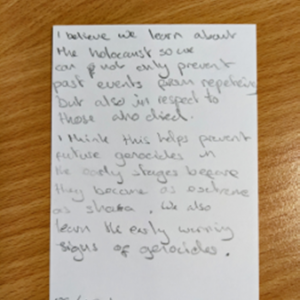 I believe we learn about
the holocaust so we
can not only prevent
past events from repeting
but also in respect to
those who died.
I think this helps prevent
future genocides in
the early stages before
they become as extreme
as shoah. We also
learn the early warning
signs of genocides.